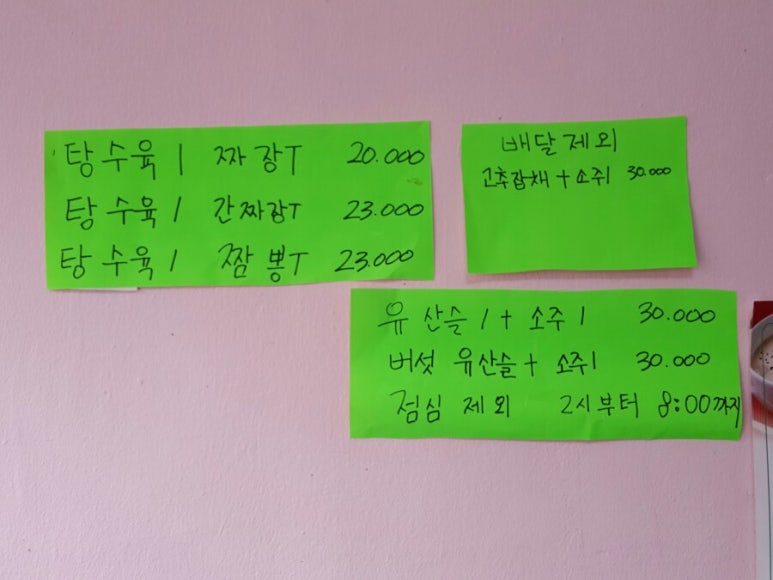 탕수육 1 짜장T 20.000
탕수육 1 간짜장T 23.000
탕수육 1 짬뽕T 23.000
배달제외
고추잡채 + 소주1 30.000
유산슬 1 + 소주 1 30.000
버섯 유산슬 + 소주1 30.000
점심 제외 2시부터 8:00까지